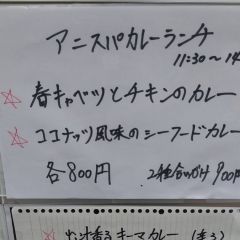 アニスパカレーランチ
11:30〜14
☆ 春キャベツとチキンのカレー
☆ ココナッツ風味のシーフードカレー
各800円 2種合がけ900円
☆ 出汁香るキーマカレー